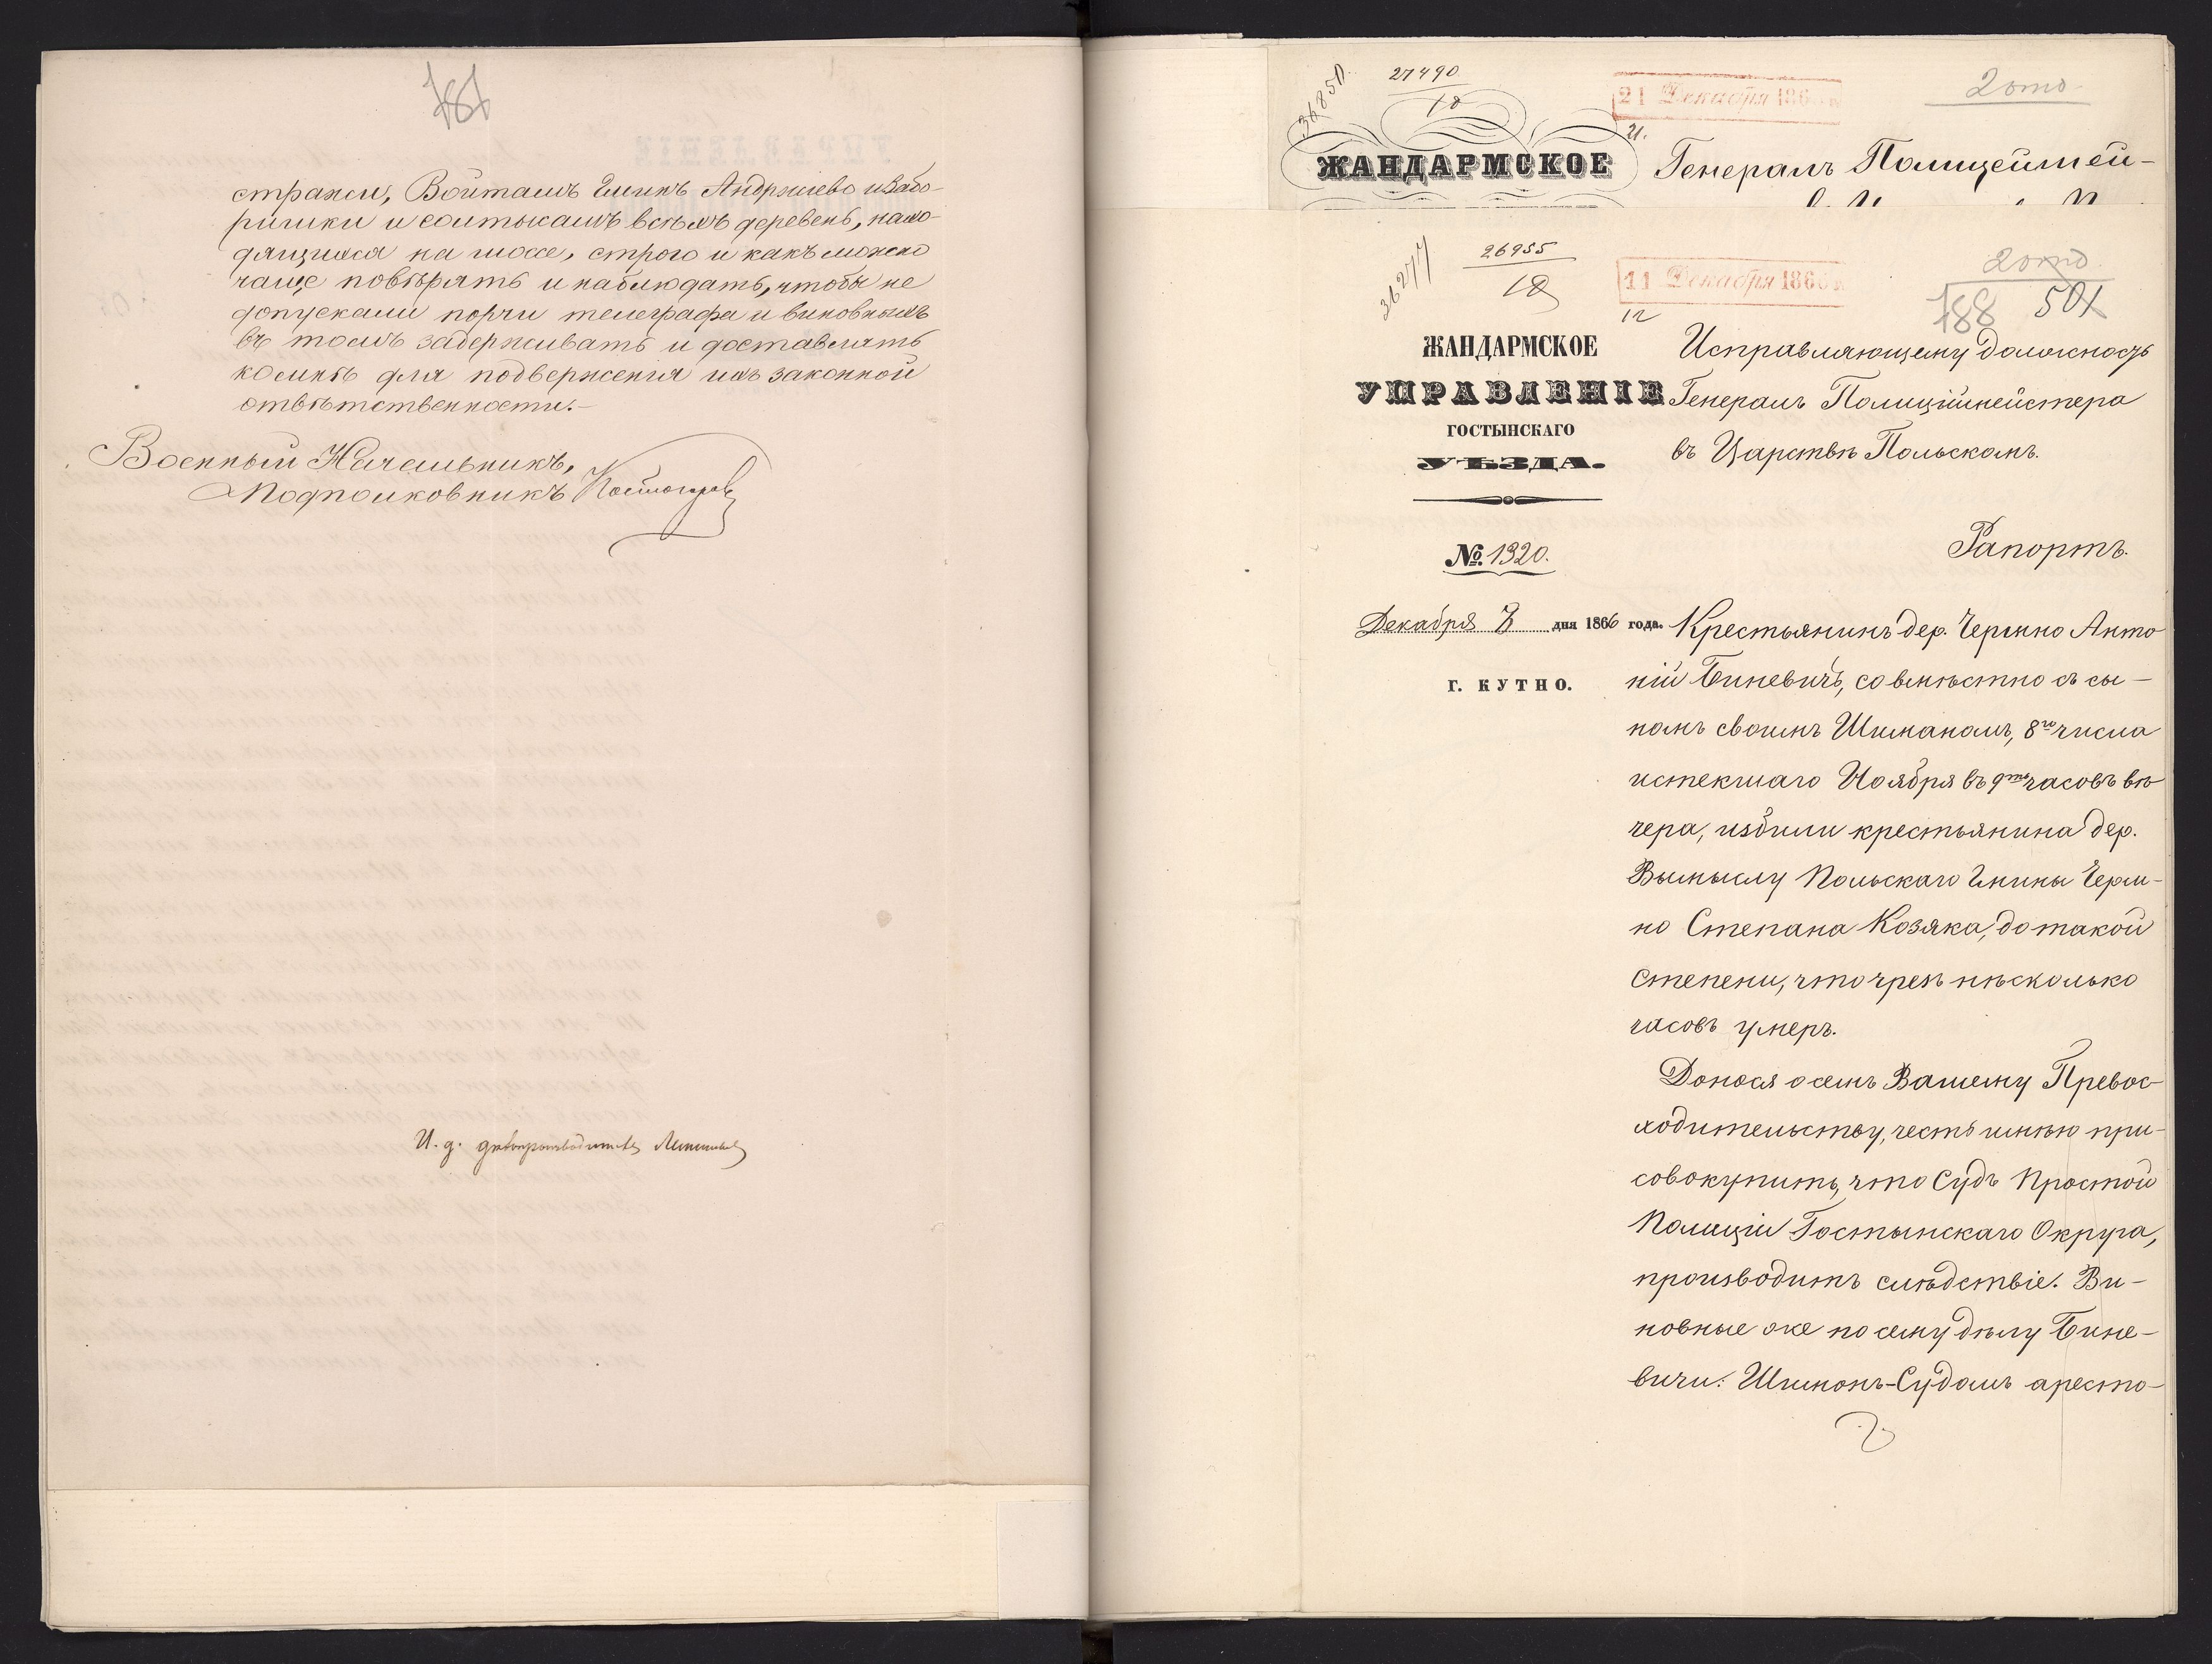 181
стражи, Войтамъ Гминъ Андржиево и Забо-
ришки и солтысамъ всѣхъ деревень, нахо-
дящихся на шоссе, строго и какъ можно
чаще повѣрять и наблюдать, чтобы не
допускали порчи телеграфа и виновныхъ
въ томъ задерживать и доставлять
ко мнѣ для подверженія ихъ законной
отвѣтственности.-
Военный Начальникъ,
Подполковникъ
И. д. дѣлопроизводителя
36850.
27490
18
21 Декабря 186
21.
2 отд.
ЖАНДАРМСКОЕ
Генералъ Полицеймей-
36277
26955
18
11 Декабря 1866
12
2 отд.
188 501
ЖАНДАРМСКОЕ
УПРАВЛЕНІЕ
ГОСТЫНСКАГО
УѢЗДА.
№ 1320.
Декабря 7 дня 1866 года.
г. КУТНО.
Исправляющему должность
Генералъ Полиціймейстера
въ Царствѣ Польскомъ.
Рапортъ.
Крестьянинъ дер. Чермно Анто
ній Биневичъ, совмѣстно съ сы-
номъ своимъ Шиманомъ, 8го числа
истекшаго Ноября въ 9ть часовъ вѣ
чера, избили крестьянина дер.
Вымыслу Польскаго Гмины Черм-
но Степана Козяка, до такой
степени, что чрезъ нѣсколько
часовъ умеръ.
Донося о семъ Вашему Превос-
ходительству, честь имѣю при-
совокупить, что Судъ Простой
Полиціи Гостынскаго Округа,
производитъ слѣдствіе. Ви-
новные же по сему дѣлу Бине-
вичи: Шимонъ-Судомъ аресто-